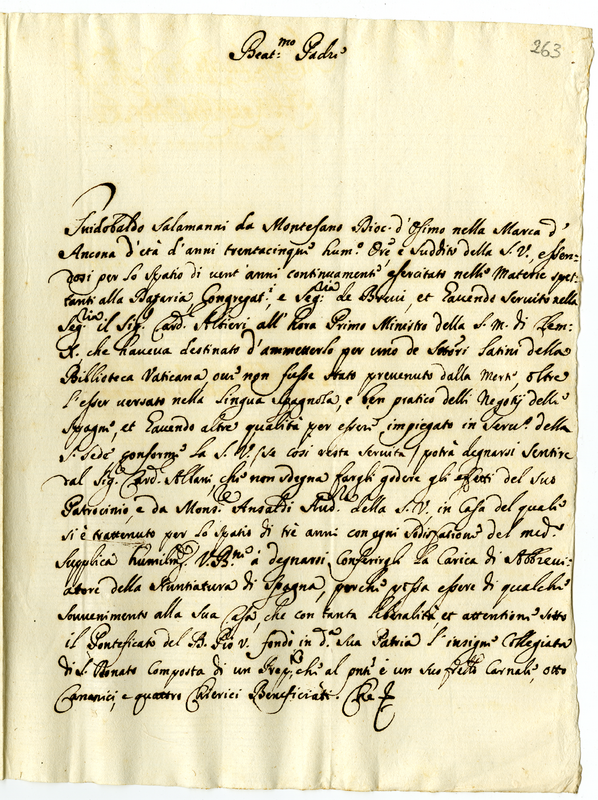 263
Beat.mo Padre
Guidobaldo Salamanni da Montefano Dioc. d'Osimo nella Marca d'
Ancona d'età d'anni trentacinque hum.e Ore e suddito della S. V., essen-
dosi per lo spatio di vent'anni continuamente esercitato nelle Materie spet-
tanti alla Dataria, Congregat.i, e Seg.ria de Brevi et havendo servito nella
Seg.ria il Sig.r Card. Altieri all'hora Primo Ministro della S. M. di Clem.
X., che haveva destinato d'ammetterlo per uno de Scttori Latini della
Biblioteca Vaticana, ove non fusse stato prevenuto dalla Morte, oltre
l'esser versato nella lingua spagnola, e ben pratico delli Negotij delle
Spagne, et havendo altre qualità per essere impiegato in serv.o della
S. Sede conforme la S. V. (se così resta servita) potrà degnarsi sentire
dal Sig.r Card. Albani, che non sdegna fargli godere gli effetti del suo
Patrocinio, e da Mons.re Ansaldi Aud.re della S. V. in Casa del quale
si è trattenuto per lo spatio di trè anni con ogni sodisfatione del med.o
supplica humilm.e V. B.ne à degnarsi conferirgli la Carica di Abbrevi-
atore della Nuntiatura di Spagna, perche possa essere di qualche
sovvenimento alla sua Casa, che con tanta liberalità et attentione sotto
il Pontificato del B. Pio V. fondò in d.a sua Patria l'insigne Collegiata
di S. Donato composta di un Prep.to, che al pnte è un suo frello Carnale otto
Canonici, e quattro Chierici Beneficiati. Che